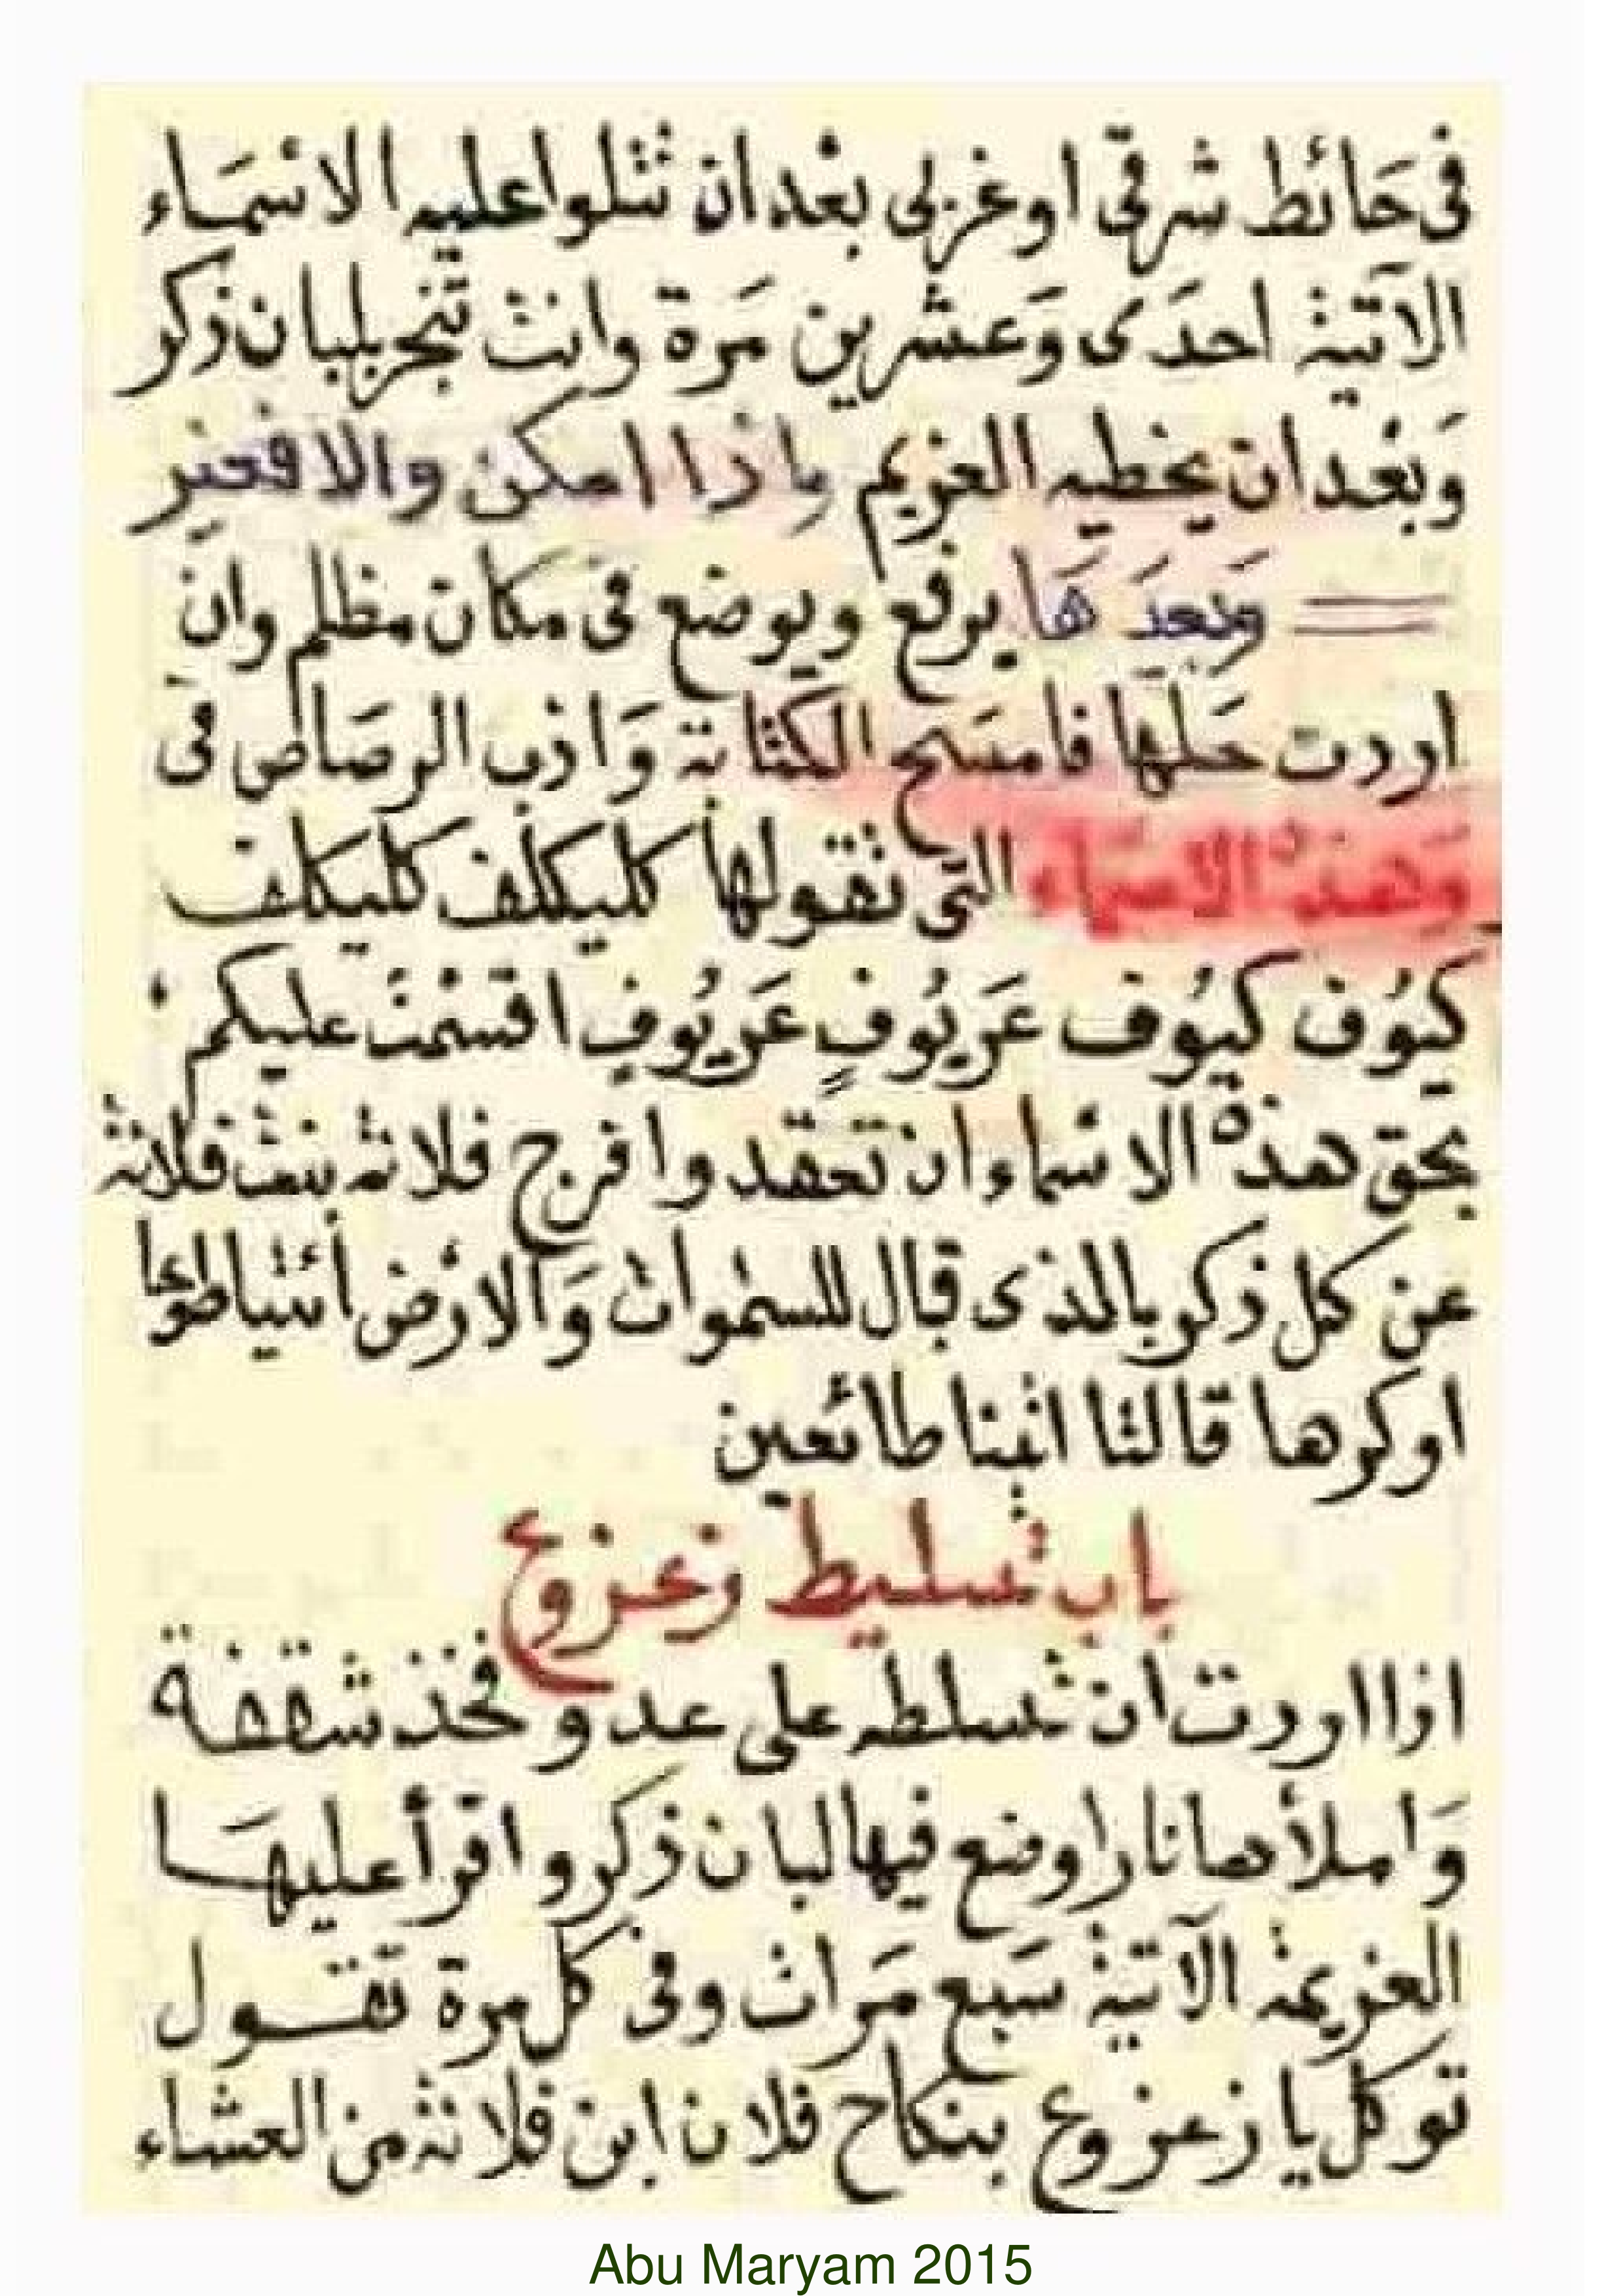 فى حَائط شرقى اوغربى بعْد ان تتلوا عليه الاسْمَاء
الآتية احدَى وَعشرين مَرة وانت تبخر بلبان ذكر
وَبعْد ان يخطيه الغريم اذا امكن والا فغير
وَبعدَ هَا يرفع ويوضع فى مكان مظلم وان
اردت حَلها فامسَح الكتابة وَاذب الرصَاص فى
وَهذه الاسمَاء التى تقولها كليكلف كليكلف
كيُوف كيُوف عَريُوفٍ عَريُوفٍ اقسمْت عليكم
بحق هذه الاسْماء ان تعقدوا فرج فلانه بنت فلانة
عن كل ذكر بالذى قال للسموات وَالارْض أئتيا طوعا
اوكرها قالتا اتينا طائعين
باب تسليط زعزوع
اذا اردت ان تسلطه على عدو فخذ شقفة
وَاملأها نارا وضع فيها لبان ذكر واقرأ عليهَا
العزيمة الآتية سَبع مَرات وفى كل مرة تقول
توكل يا زعزوع بنكاح فلان ابن فلانة من العشاء
Abu Maryam 2015